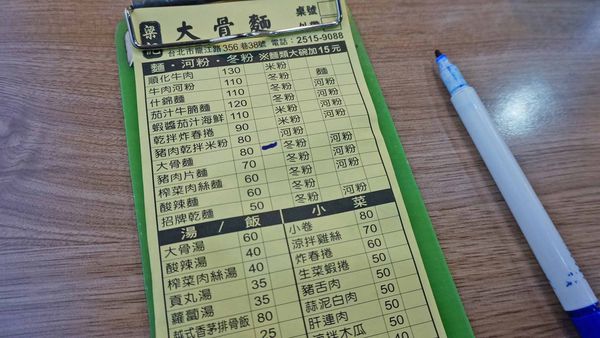 梁記 大骨麵 桌號
台北市龍江路356巷38號 電話：2515-9088
麵・河粉・冬粉 ※麵類大碗加15元
順化牛肉 130 米粉
牛肉河粉 110 冬粉 麵
什錦麵 110 米粉 河粉
茄汁牛腩麵 120 冬粉 河粉
蝦醬茄汁海鮮 110 米粉 河粉
乾拌炸春捲 90 米粉 河粉
豬肉乾拌米粉 80 冬粉 河粉
大骨麵 80 冬粉 河粉
豬肉片麵 70 冬粉 河粉
榨菜肉絲麵 60 冬粉 河粉
酸辣麵 60 冬粉
招牌乾麵 50 冬粉 河粉
湯/飯 小菜
大骨湯 60 小卷 80
酸辣湯 40 涼拌雞絲 70
榨菜肉絲湯 40 炸春捲 60
貢丸湯 35 生菜蝦捲 50
蘿蔔湯 35 豬舌肉 50
越式香茅排骨飯 80 蒜泥白肉 50
25 肝連肉 50
涼拌木瓜 40